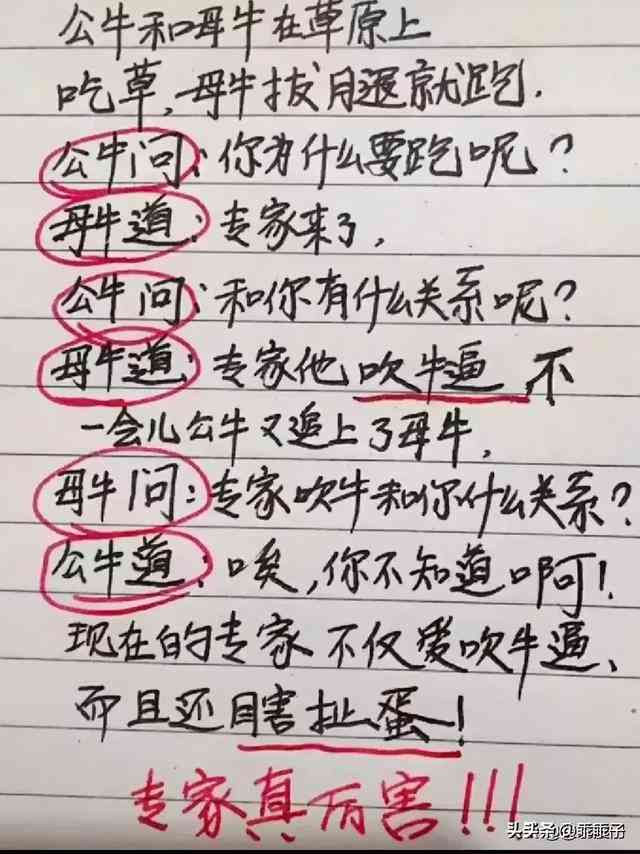 公牛和母牛在草原上
吃草,母牛拔腿就跑.
公牛问:你为什么要跑呢?
母牛道:专家来了,
公牛问:和你有什么关系呢?
母牛道:专家他吹牛逼,不
一会儿公牛又追上了母牛,
母牛问:专家吹牛和你什么关系?
公牛道:唉,你不知道啊!
现在的专家不仅爱吹牛逼、
而且还瞎扯蛋!
专家真厉害!!!
头条@乖乖仔